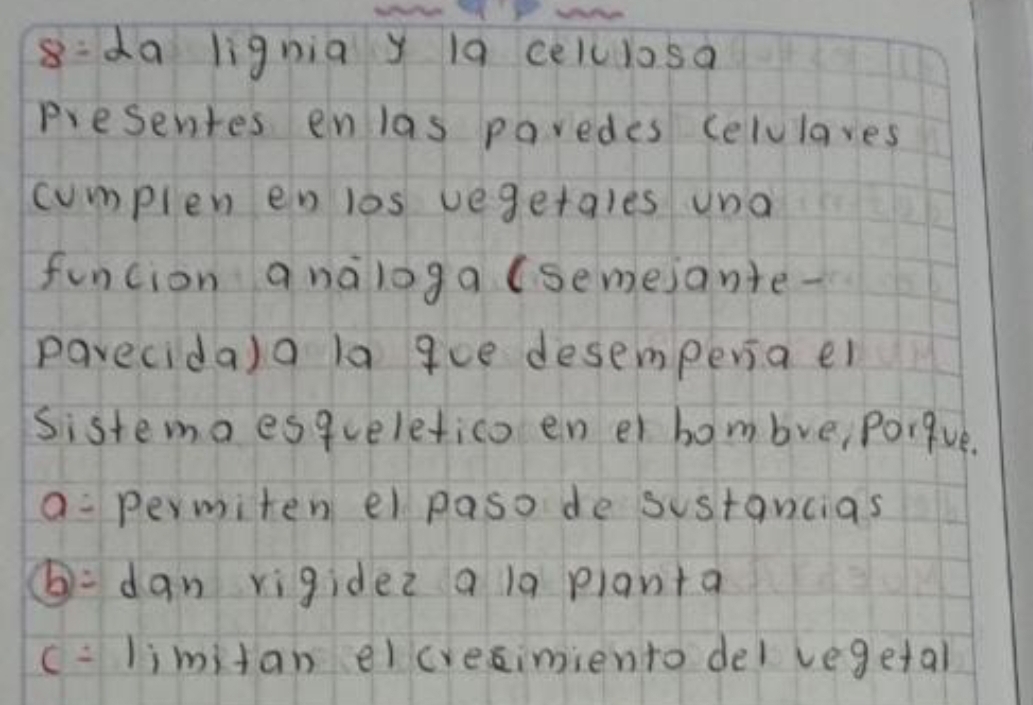 8= La lignia y la celulosa
Presentes en las paredes celulares
cumplen en los vegetales una
funcion análoga (semejante-
parecida) a la que desempeña el
Sistema esqueletico en el hombre, Porque.
a= permiten el paso de sustancias
b= dan rigidez a la planta
c= limitan el cresimiento del vegetal